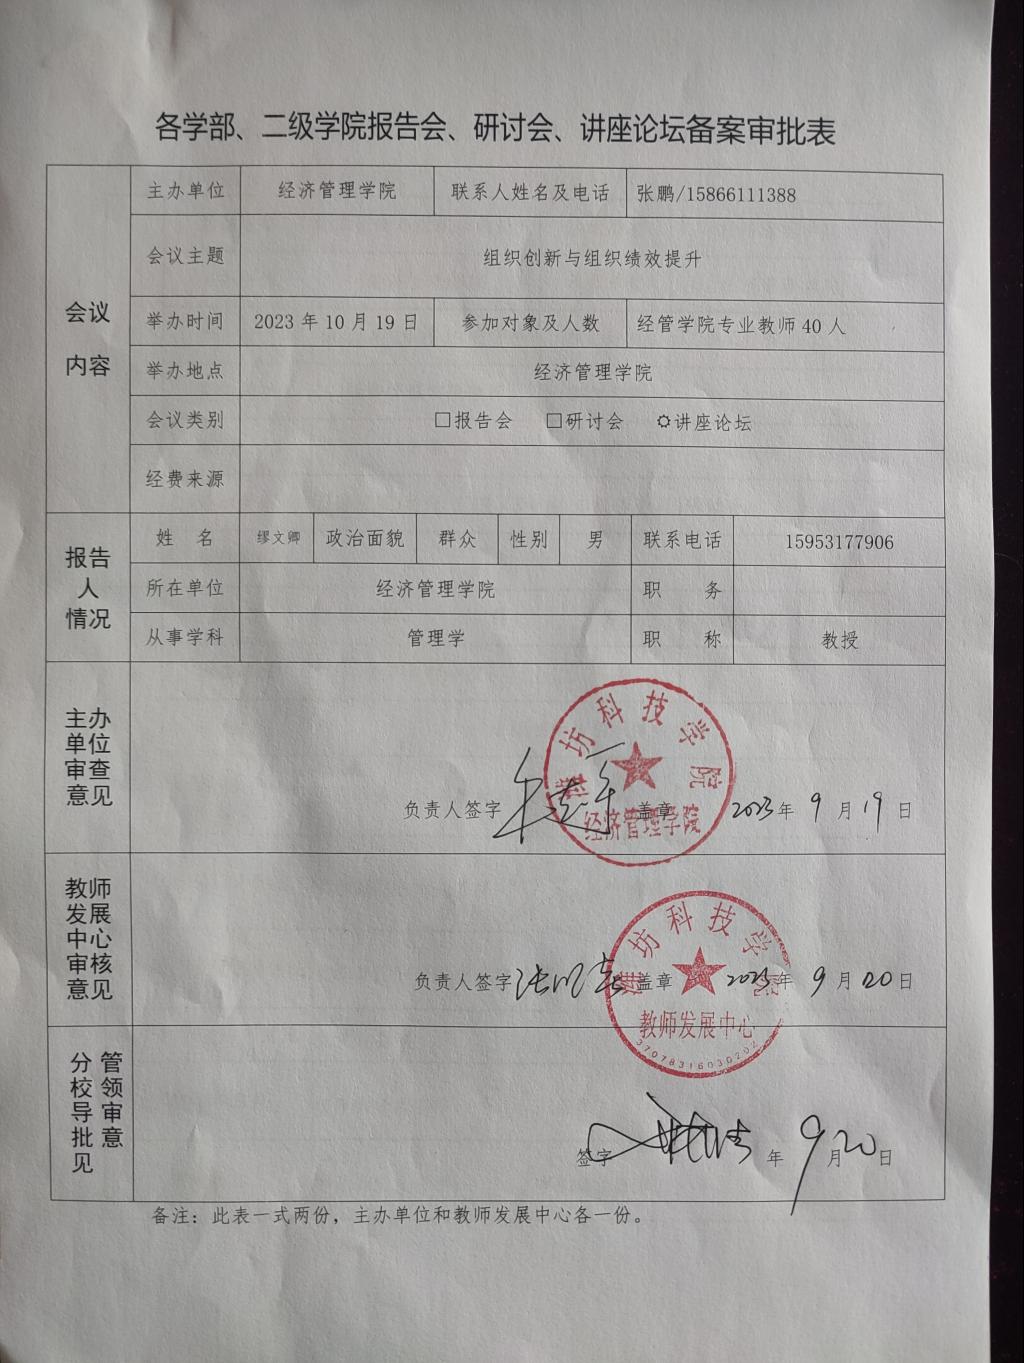 各学部、二级学院报告会、研讨会、讲座论坛备案审批表
会议内容
主办单位 经济管理学院 联系人姓名及电话 张鹏/15866111388
会议主题 组织创新与组织绩效提升
举办时间 2023 年 10 月 19 日 参加对象及人数 经管学院专业教师 40 人
举办地点 经济管理学院
会议类别 □报告会 □研讨会 讲座论坛
经费来源
报告人情况
姓 名 缪文卿 政治面貌 群众 性别 男 联系电话 15953177906
所在单位 经济管理学院 职 务
从事学科 管理学 职 称 教授
主办单位审查意见
潍坊科技学院
经济管理学院
负责人签字 盖章 2023 年 9 月 19 日
教师发展中心审核意见
潍坊科技学院
负责人签字 盖章 2023 年 9 月 20 日
教师发展中心
分管校领导审批意见
签字 年 9 月 20 日
备注：此表一式两份，主办单位和教师发展中心各一份。